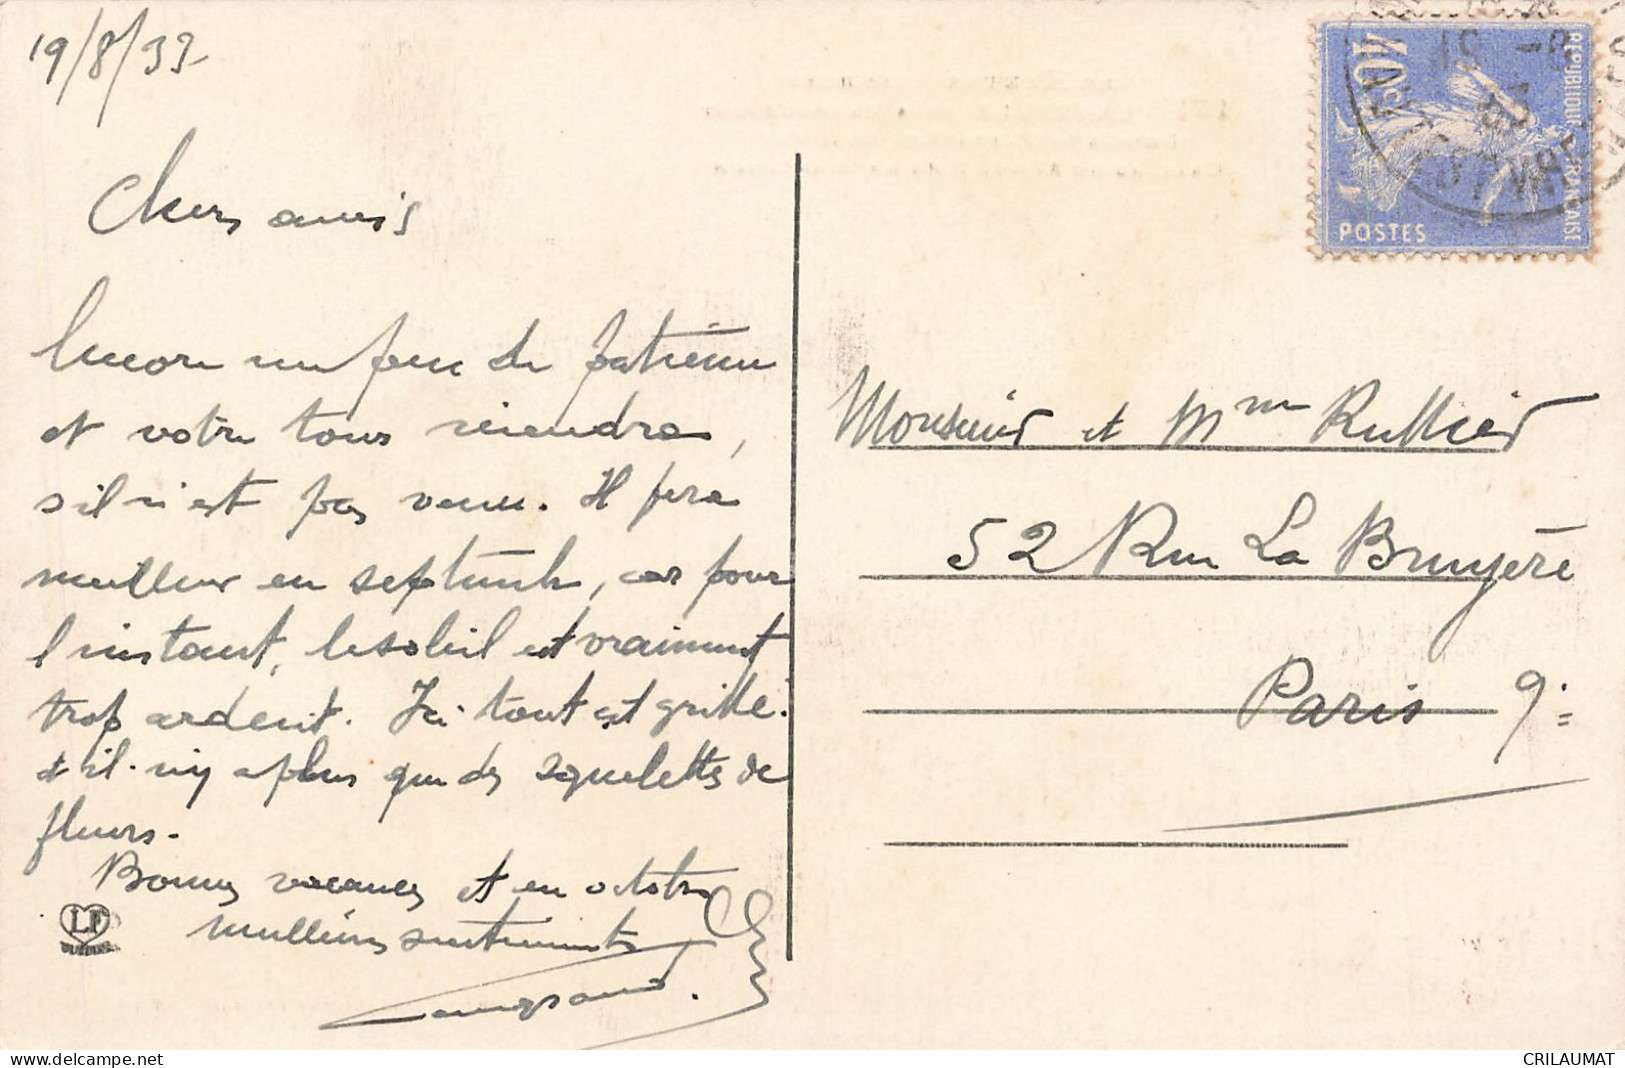 19/8/39
Chers amis
Encore un peu de patience
et votre tour viendra,
s'il n'est pas venu. Il fera
meilleur en septembre, car pour
l'instant, le soleil est vraiment
trop ardent. Ici tout est grillé.
et il n'y a plus que des squelettes de
fleurs.
Bonnes vacances et en octobre
meilleurs sentiments
LF
40c
REPUBLIQUE FRANÇAISE
POSTES
Monsieur et Mme Rullier
52 Rue La Bruyère
Paris 9e
delcampe.net
CRILAUMAT